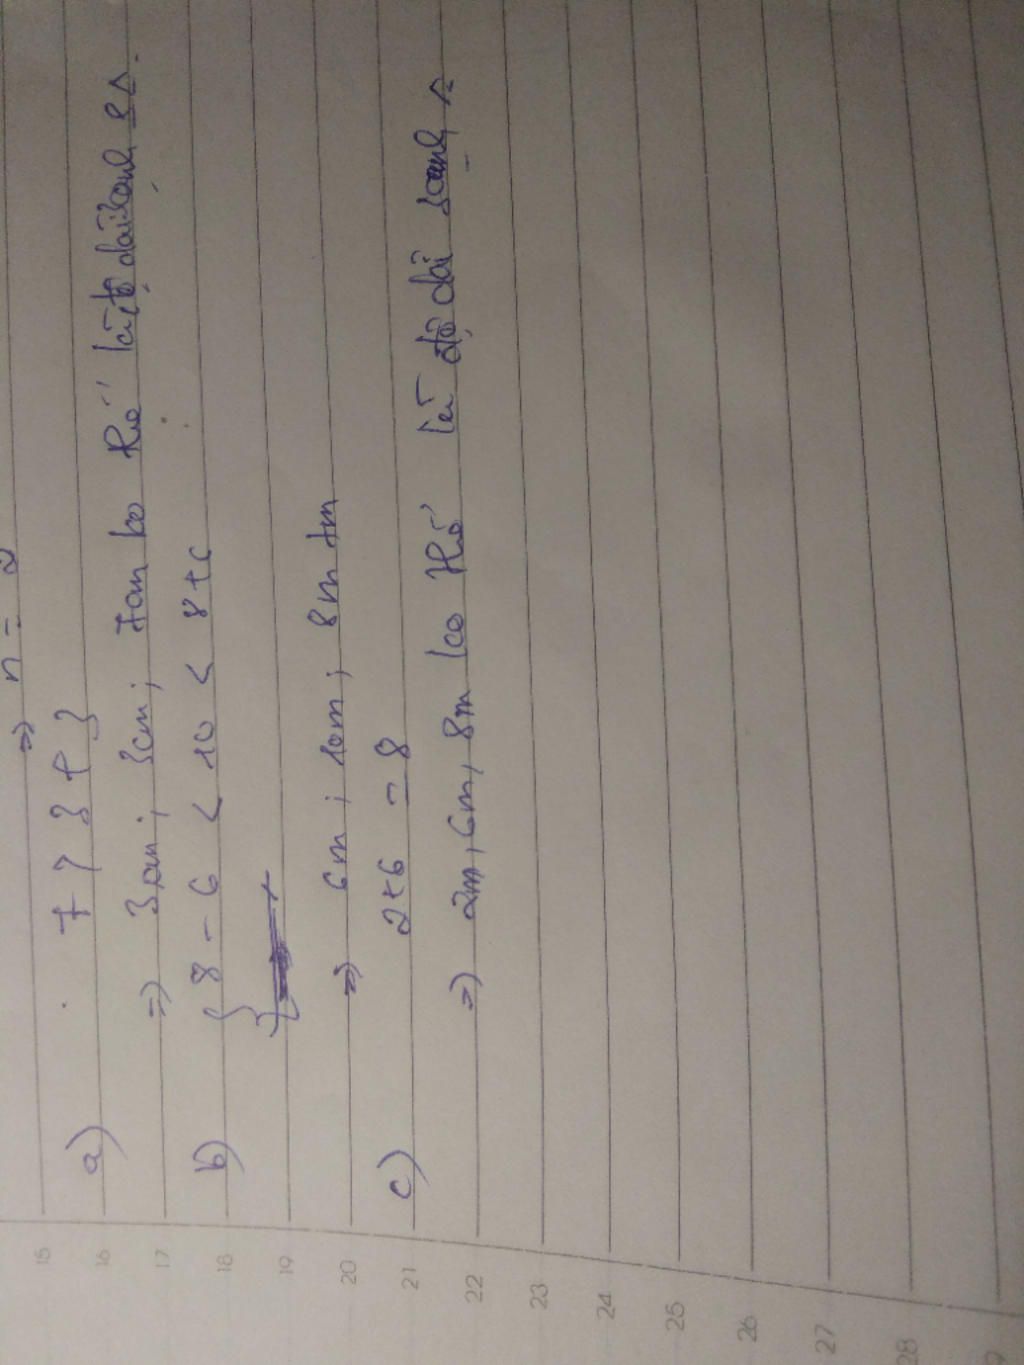 ⇒ n = 2
a) 7 > 3 + 3
⇒ 3cm; 3cm; 7cm ko thể là độ dài 3 cạnh Δ.
b) { 8 - 6 < 10 < 8 + 6
⇒ 6m; 10m; 8m
c) 2+6 = 8
⇒ 2m, 6m, 8m ko thể là độ dài 3 cạnh Δ
15
16
17
18
19
20
21
22
23
24
25
26
27
28